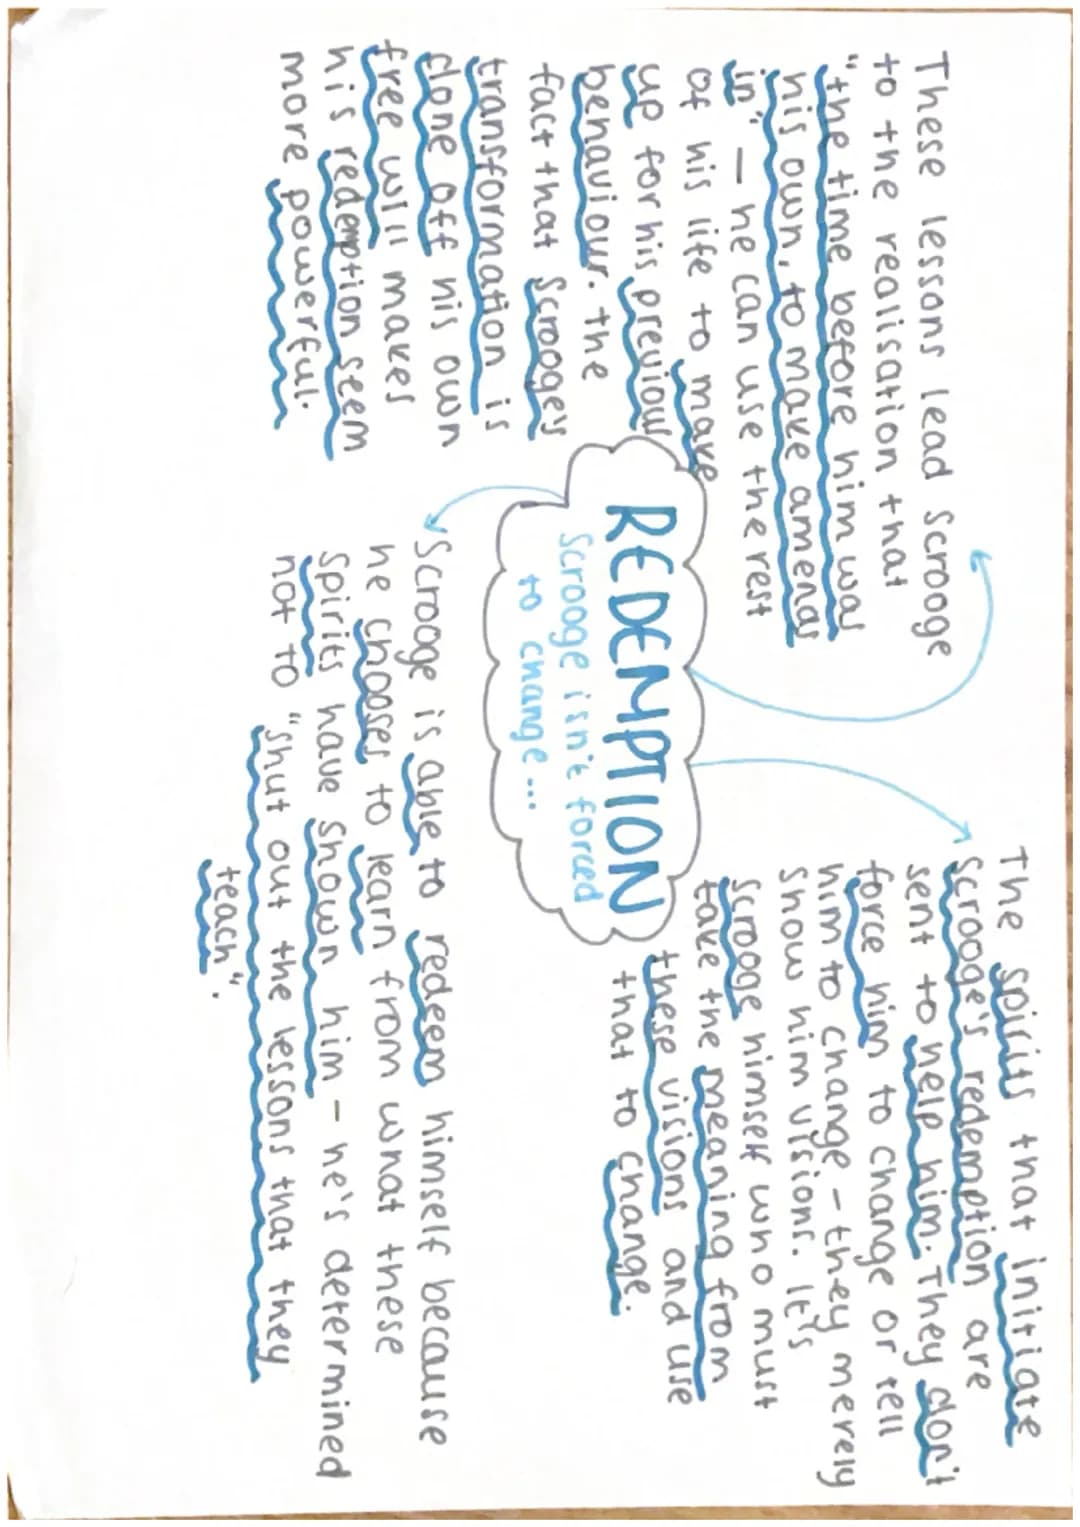 These lessons lead Scrooge
to the realisation that
"the time before him was
his own, to make amends
in" - he can use the rest
of his life to make
up for his previous
behaviour. the
fact that Scrooge's
transformation is
done off his own
free will makes
his redemption seem
more powerful.
REDEMPTION
Scrooge isn't forced
to change...
The spirits that initiate
Scrooge's redemption are
sent to help him. They don't
force him to change or tell
him to change - they merely
show him visions. It's
Scrooge himself who must
take the meaning from
these visions and use
that to change.
Scrooge is able to redeem himself because
he chooses to learn from what these
spirits have shown him - he's determined
not to "shut out the lessons that they
teach".